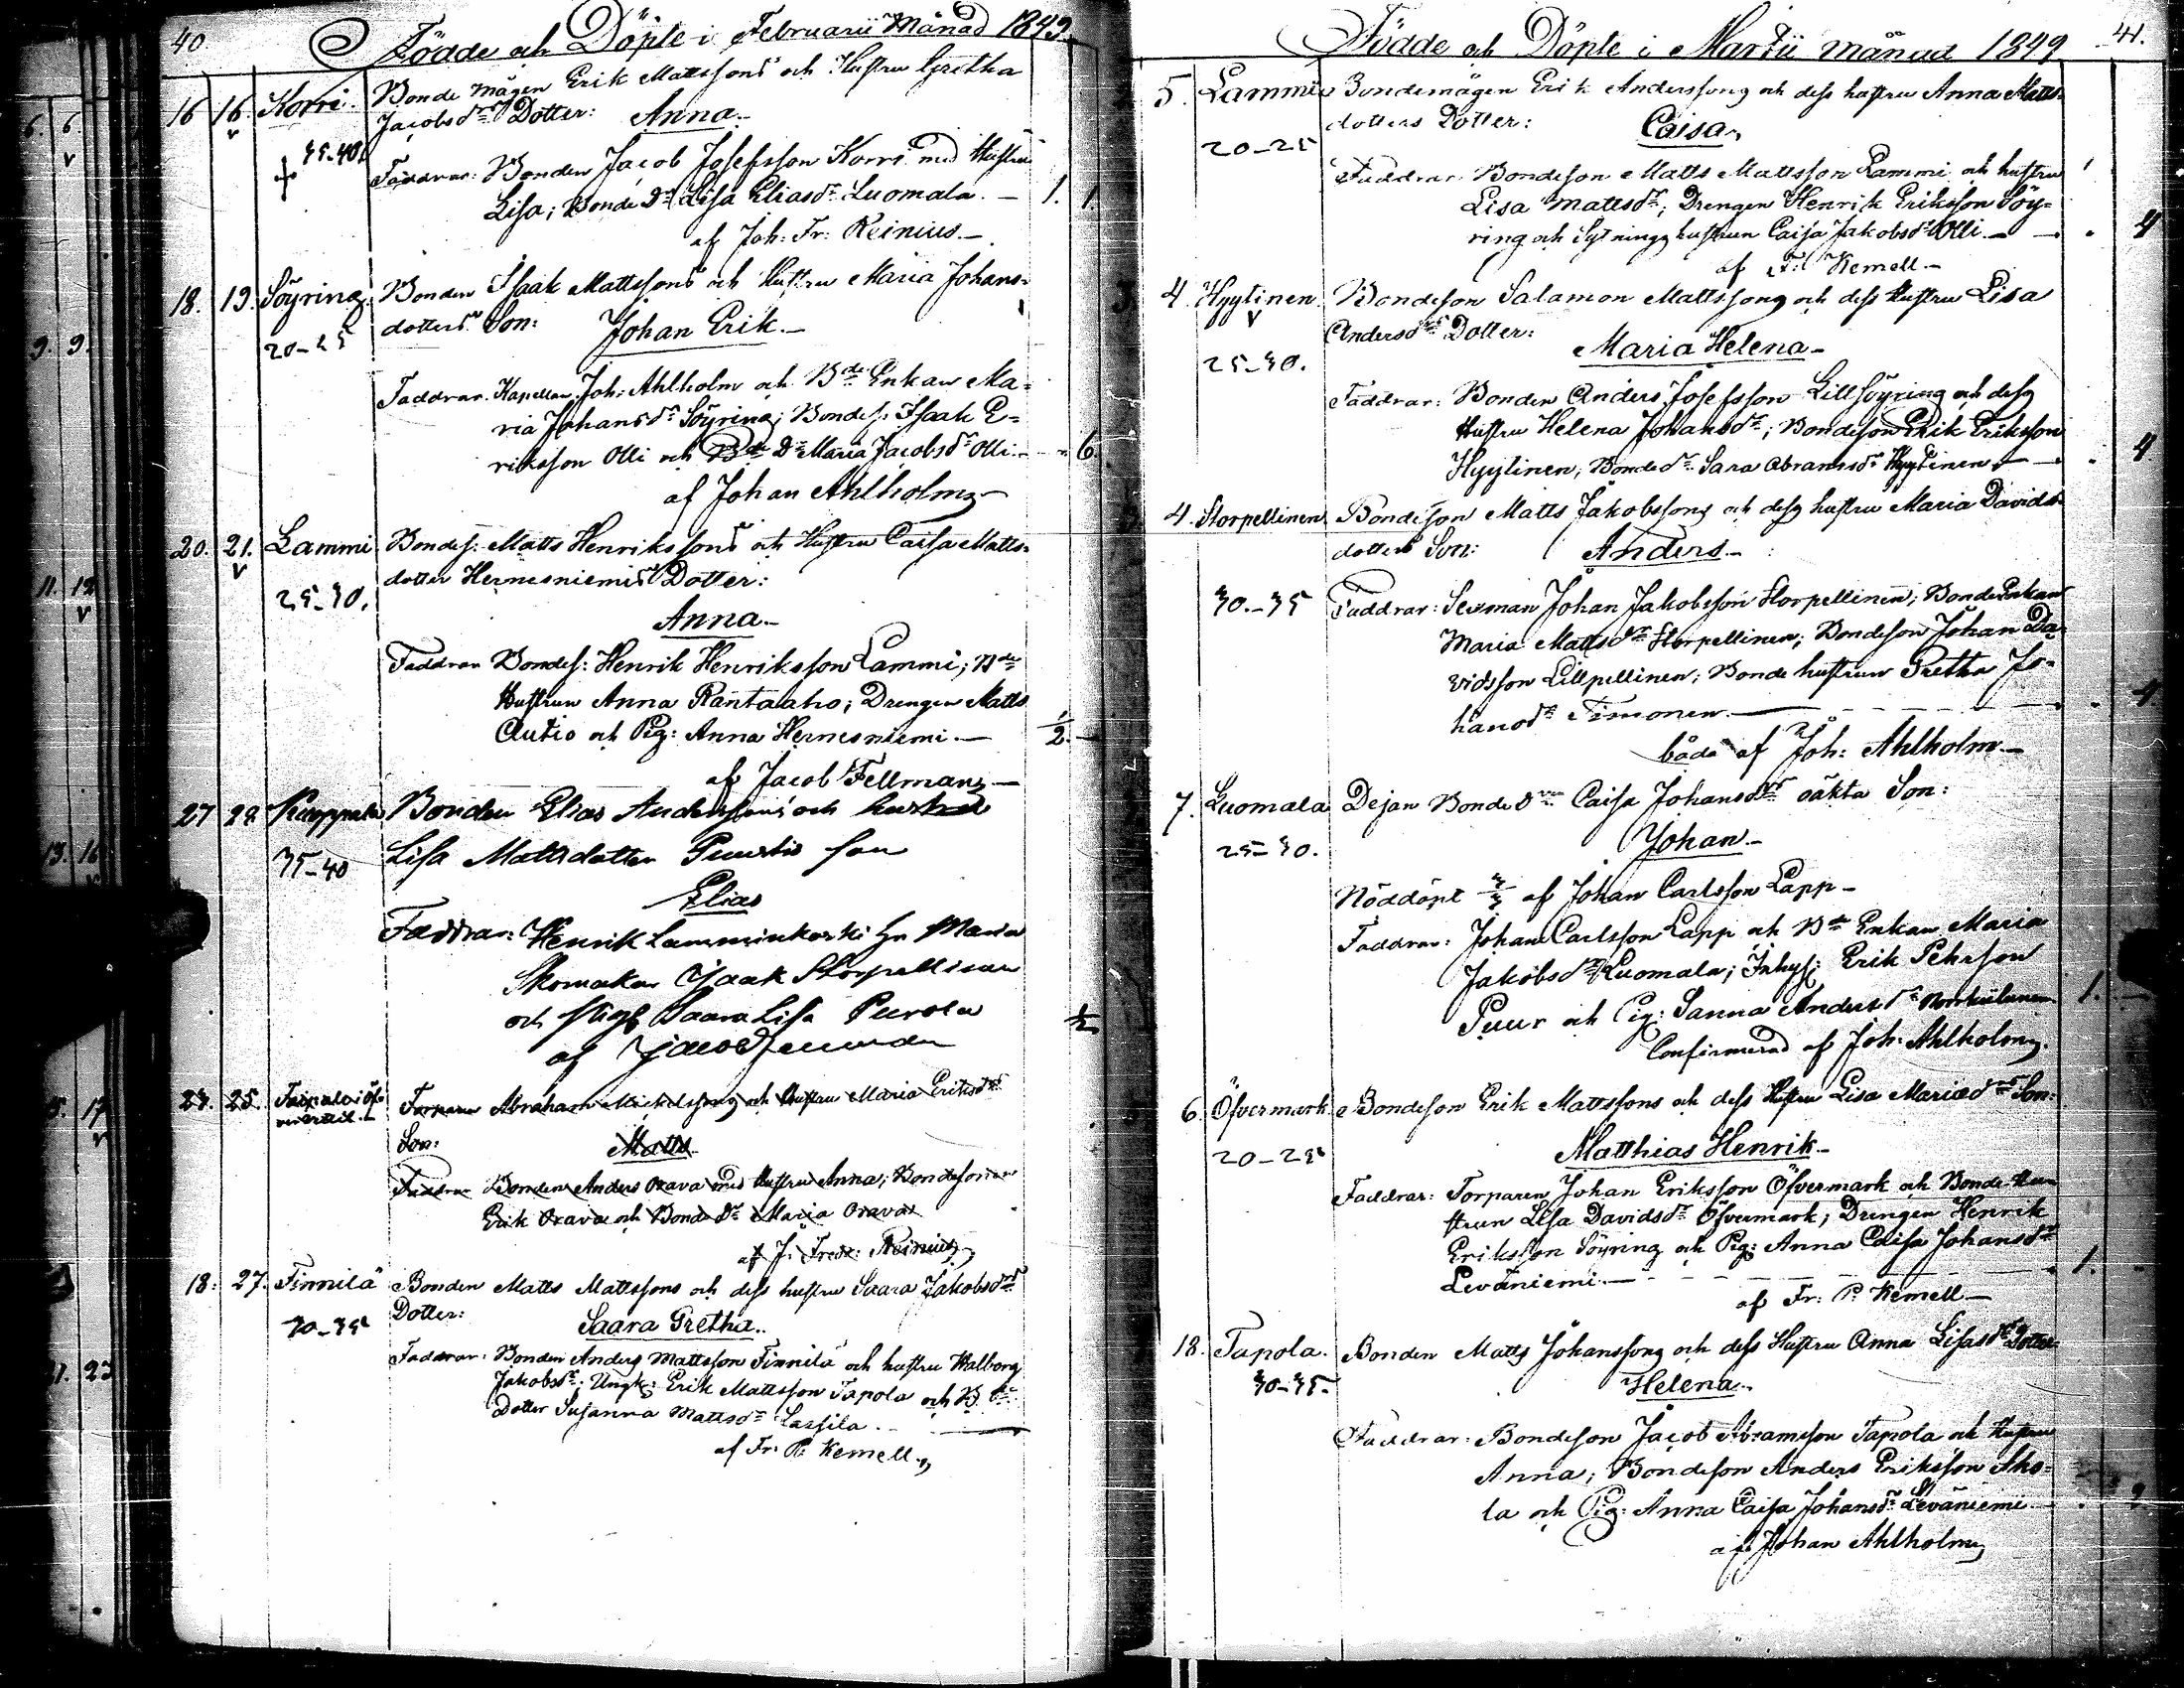 40
Födde och Döpte i Februarii Månad 1849.
16 16. Korri. Bonde mågen Erik Mattssons och Hustru Gretha
Jacobsdrs Dotter: Anna.
35-40
Faddrar: Bonden Jacob Josefsson Korri med Hustru
Lisa; Bonde Dr Lisa Eliasdr Luomala. — 1. 1.
af Joh: Fr: Reinius.—
18. 19. Söyring. Bonden Isaak Mattssons och Hustru Maria Johans-
dotters Son: Johan Erik.—
20-25
Faddrar. Kapellan Joh: Ahlholm och Bde Enkan Ma-
ria Johansdr Söyring; Bondes: Isaak E-
riksson Olli och Bde Dr Maria Jacobsdr Olli. — 6.
af Johan Ahlholm
20. 21. Lammi Bondes: Matts Henrikssons och Hustru Caisa Matts-
dotter Hernesniemis Dotter:
25-30.
Anna.—
Faddrar Bondes: Henrik Henriksson Lammi; Bde
Hustrun Anna Rantaaho; Drengen Matts
Autio och Pig: Anna Hernesniemi.— 1/2.
af Jacob Fellman
27 28. Bonden Elias Anderssons och hustru
35-40 Lisa Mattsdotter Puustis son
Elias
Faddrar: Henrik Lamminkoski hu Maria
Skomakar Isaak Storpellinen
och Saara Lisa Purola 1/2
af
25. Torparen Abraham Michelssons och Hustru Maria Eriksdrs
Son: Matts
Faddrar Bonden Anders Orava med Hustru Anna; Bondesonen
Erik Orava och Bonde Dr Maria Orava
af J. Fredr: Reinius
18. 27. Finnilä Bonden Matts Mattssons och dess hustru Saara Jakobsdrs
Dotter: Saara Gretha..
30-35
Faddrar: Bonden Anders Mattsson Finnilä och hustru Walborg
Jakobsdr; Ungk: Erik Mattsson Tapola och B.
Dotter Susanna Mattsdr Lassila.
af Fr: P. Kemell
41.
Födde och Döpte i Martii månad 1849
5. Lammi Bondemågen Erik Anderssons och dess hustru Anna Matts-
dotters Dotter: Caisa.
20-25
Faddrar Bondeson Matts Mattsson Lammi och hustru
Lisa Mattsdr; Drengen Henrik Eriksson Söy-
ring och Sytnings hustrun Caisa Jakobsdr Olli.— 4
af F: Kemell.—
4. Hyytinen. Bondeson Salamon Mattssons och dess Hustru Lisa
Andersdrs Dotter:
25-30.
Maria Helena—
Faddrar: Bonden Anders Josefsson Lillsöyring och dess
Hustru Helena Johansdr; Bondeson Erik Eriksson
Hyytinen, Bonde dr Sara Abramsdr Hyytinen.— 4
4. Storpellinen Bondeson Matts Jakobssons och dess hustru Maria Davids-
dotters Son: Anders—
30.-35 Faddrar: Sexman Johan Jakobsson Storpellinen; Bonde Enkan
Maria Mattsdr Storpellinen; Bondeson Johan Da-
vidsson Lillpellinen; Bonde hustrun Gretha Jo-
hansdr Timonen.—
båda af Joh: Ahlholm.—
7. Luomala Dejan Bonde drn Caisa Johansdrs oäkta Son:
25-30. Johan.—
Nöddöpt af Johan Carlsson Lapp—
Faddrar: Johan Carlsson Lapp och Bde Enkan Maria
Jakobsdr Luomala; Inhys: Erik Pehrson
Puur och Pig: Sanna Andersdr 1.
Confirmerad af Joh: Ahlholm.
6. Öfvermark Bondeson Erik Mattssons och dess Hustru Lisa Mariædrs Son:
20-25 Matthias Henrik—
Faddrar: Torparen Johan Eriksson Öfvermark och Bonde Hu-
strun Lisa Davidsdr Öfvermark; Drengen Henrik
Eriksson Söyring och Pig: Anna Caisa Johansdr
Leväniemi.— 1.
af Fr: P. Kemell—
18. Tapola. Bonden Matts Johanssons och dess Hustru Anna Lisasdrs Dotter
30-35. Helena.
Faddrar: Bondeson Jacob Abramsson Tapola och Hustru
Anna; Bondeson Anders Eriksson Aho-
la och Pig: Anna Caisa Johansdr Leväniemi.
af Johan Ahlholm